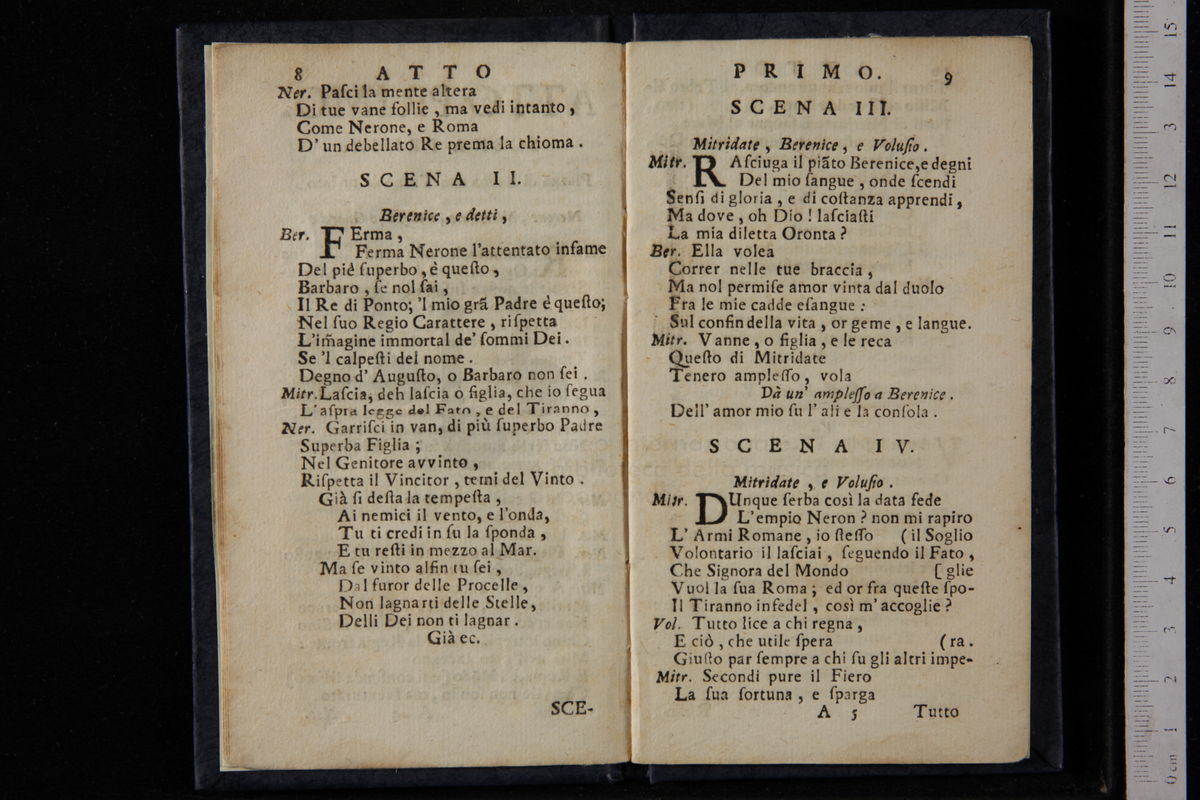 8 ATTO
Ner. Paſci la mente altera
Di tue vane follie, ma vedi intanto,
Come Nerone, e Roma
D' un debellato Re prema la chioma.
SCENA II.
Berenice, e detti,
Ber. FErma,
Ferma Nerone l'attentato infame
Del piè ſuperbo, è queſto,
Barbaro, ſe nol ſai,
Il Re di Ponto; 'l mio grã Padre è queſto;
Nel ſuo Regio Carattere, riſpetta
L'im̃agine immortal de' ſommi Dei.
Se 'l calpeſti del nome.
Degno d' Auguſto, o Barbaro non ſei.
Mitr. Laſcia, deh laſcia ò figlia, che io ſegua
L' aſpra legge del Fato, e del Tiranno,
Ner. Garriſci in van, di più ſuperbo Padre
Superba Figlia;
Nel Genitore avvinto,
Riſpetta il Vincitor, temi del Vinto.
Già ſi deſta la tempeſta,
Ai nemici il vento, e l'onda,
Tu ti credi in ſu la ſponda,
E tu reſti in mezzo al Mar.
Ma ſe vinto alfin tu ſei,
Dal furor delle Procelle,
Non lagnarti delle Stelle,
Delli Dei non ti lagnar.
Già ec.
SCE-
PRIMO. 9
SCENA III.
Mitridate, Berenice, e Voluſio.
Mitr. RAſciuga il piãto Berenice, e degni
Del mio ſangue, onde ſcendi
Senſi di gloria, e di coſtanza apprendi,
Ma dove, oh Dio! laſciaſti
La mia diletta Oronta?
Ber. Ella volea
Correr nelle tue braccia,
Ma nol permiſe amor vinta dal duolo
Fra le mie cadde eſangue:
Sul confin della vita, or geme, e langue.
Mitr. Vanne, o figlia, e le reca
Queſto di Mitridate
Tenero ampleſſo, vola
Dà un' ampleſſo a Berenice.
Dell' amor mio ſu l' ali e la conſola.
SCENA IV.
Mitridate, e Voluſio.
Mitr. DUnque ſerba così la data fede
L'empio Neron? non mi rapiro
L' Armi Romane, io ſteſſo (il Soglio
Volontario il laſciai, ſeguendo il Fato,
Che Signora del Mondo [glie
Vuol la ſua Roma; ed or fra queſte ſpo-
Il Tiranno infedel, così m' accoglie?
Vol. Tutto lice a chi regna,
E ciò, che utile ſpera (ra.
Giuſto par ſempre a chi ſu gli altri impe-
Mitr. Secondi pure il Fiero
La ſua fortuna, e ſparga
A 5 Tutto
0 cm 1 2 3 4 5 6 7 8 9 10 11 12 13 14 15